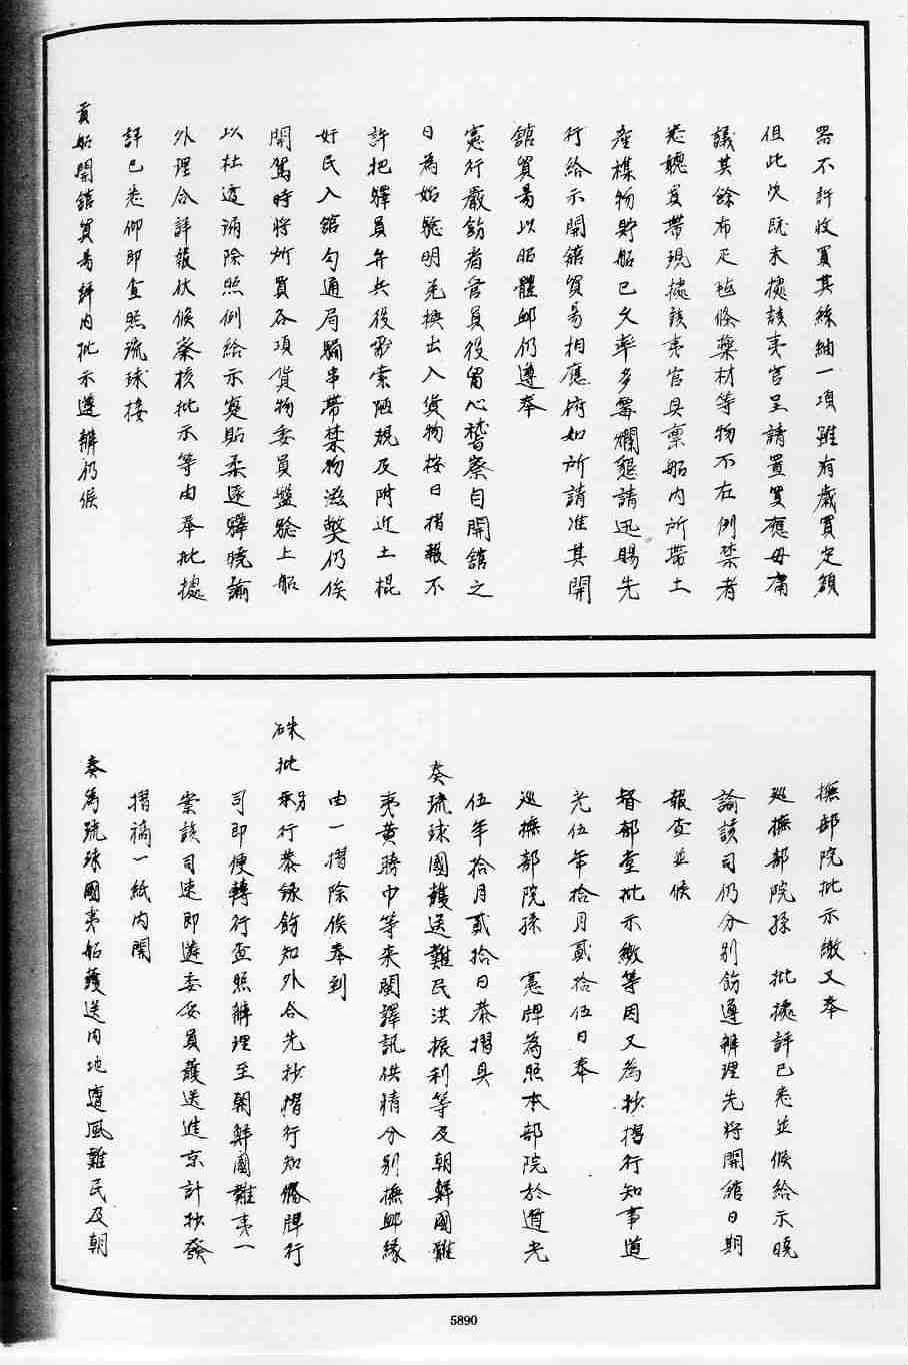 器不許收買其絲紬一項雖有歲買定額
但此次既未據該夷官呈請置買應毋庸
議其餘布疋毡條藥材等物不在例禁者
悉聽買帶現據該夷官具稟船內所帶土
產粿物貯船已久率多霉爛懇請迅賜先
行給示開舘貿易相應俯如所請准其開
舘貿易以昭體卹仍遵奉
憲行嚴飭者官員役留心嵆察自開舘之
日為始驗明兌換出入貨物按日摺報不
許把驛員弁兵役需索陋規及附近土棍
奸民入舘勾通局騙串帶禁物滋獘仍俟
開駕時將所買各項貨物委員盤驗上船
以杜透漏除照例給示寔貼柔遠驛曉諭
外理合詳報伏候察核批示等由奉批據
詳已悉仰即查照琉球接
貢船開舘貿易詳內批示遵辦仍候
撫部院批示繳又奉
巡撫部院孫 批據詳已悉並候給示曉
諭該司仍分別飭遵辦理先將開舘日期
報查並候
督部堂批示繳等因又為抄摺行知事道
光伍年拾月貳拾伍日奉
巡撫部院孫 憲牌為照本部院於道光
伍年拾月貳拾日恭摺具
奏琉球國護送難民洪振利等及朝鮮國難
夷黃勝巾等来閩譯訊供情分別撫卹緣
由一摺除俟奉到
硃批另行恭錄飭知外合先抄摺行知備牌行
司即便轉行查照辦理至朝鮮國難夷一
案該司速即遴委妥員護送進京計抄發
摺稿一紙內開
奏為琉球國夷船護送內地遭風難民及朝
5890